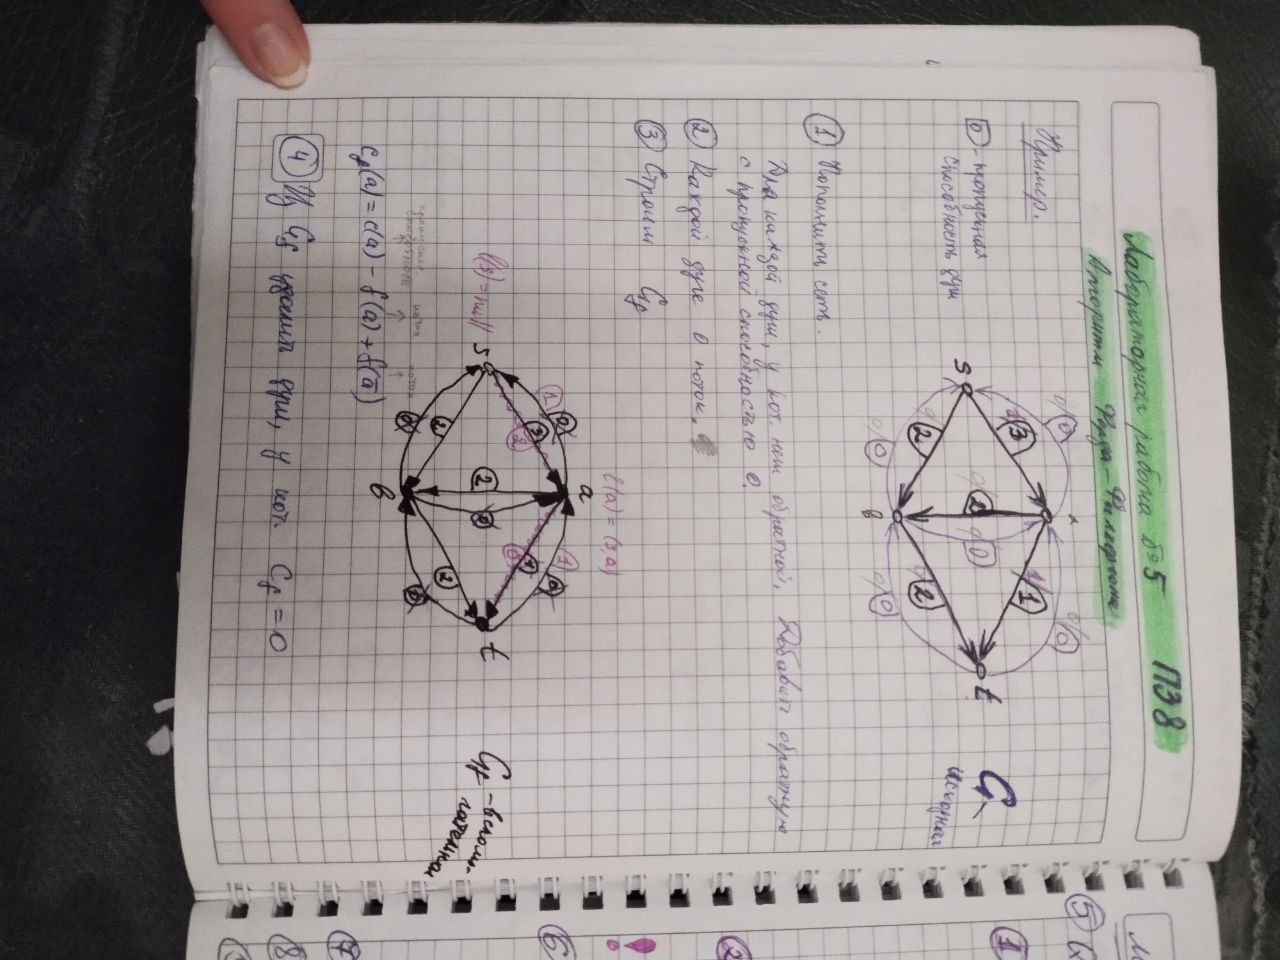 Лабораторная работа №5 ПЗ 8
Алгоритм Форда-Фалкерсона
Пример.
0 - пропускная
способность дуги
0/0
0/0
1/3
1/1
s
2
0
t
0/2
0/2
0/0
0/0
в
G
исходная
1 Пополнить сеть.
Для каждой дуги, у кот. нет обратной, Добавить обратную
с пропускной способностью 0.
2 Каждой дуге 0 поток.
3 Строим Gf
l(a) = (s,a)
a
1 0
1 0
3 2
1 0
l(s) = null
s
2
0
t
2
2
0
0
в
Gf - вспомо-
гательная
пропускн.
способность
поток
поток
cf(a) = c(a) - f(a) + f(ā)
4 Из Gf удалить дуги, у кот. Cf = 0
5
1
2
!
6
7
8